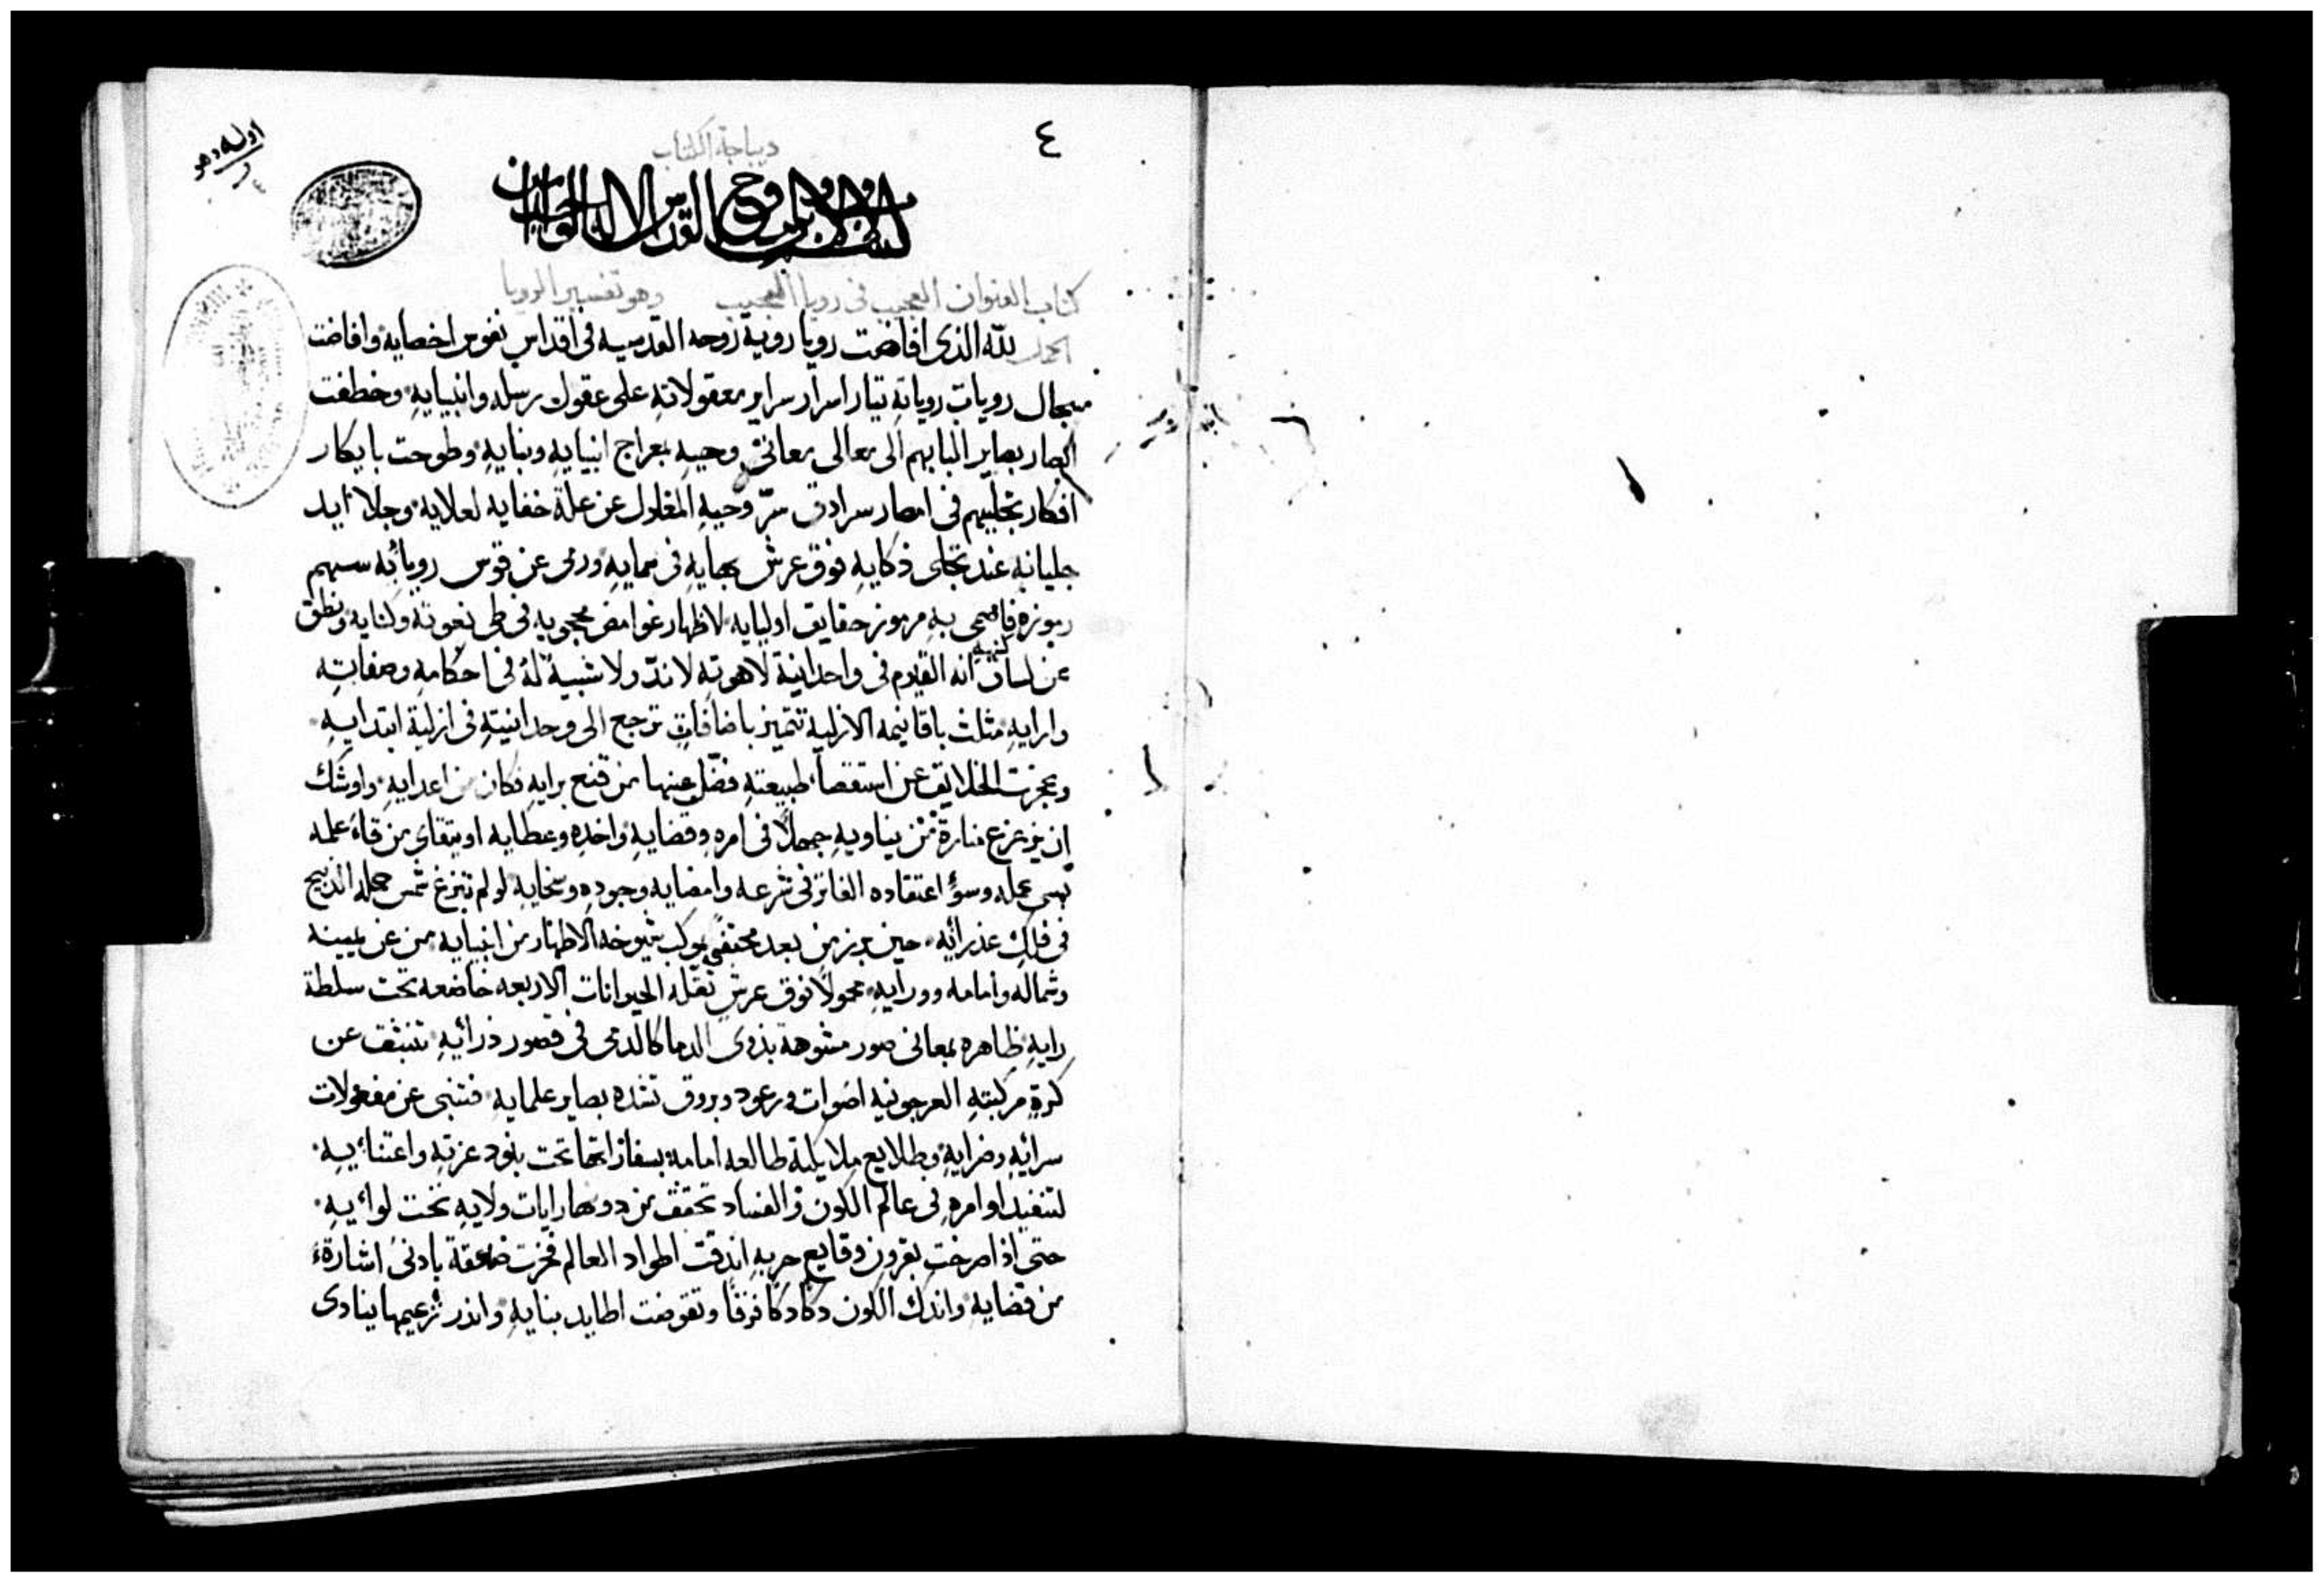 ٤
ديباجة الكتاب
بسم الاب والابن والروح القدس الاله الواحد امين
كتاب العنوان العجيب فى رويا الحبيب وهو تفسير الرويا
الحمد لله الذى افاضت رويا روية روحه القدسيه فى اقداس نفوس اخصايه وافاضت
سجال رويات روياته تيار اسرار سراير معقولاته على عقول رسله وانبيايه وخطفت
ابصار بصاير البابهم الى معالى معانى وحيه بمعراج انبيايه ونبايه وطوحت بابكار
افكار تجليهم فى امصار سرادق سرّ وحيه المغلول عن علة خفايه لعلايه وجلا ايد
جليانه عند تجلى ذكايه فوق عرش بهايه فى سمايه ورمى عن قوس رويائه سهم
رموزه فاصمى به مرموز حقايق اوليايه لاظهار غوامض محجوبه فى طى نعوته وكنايه ونطق
عن لسان كنهه انه القيوم فى واحدانية لاهوته لا ندّ ولا شبيه له فى احكامه وصفاته
وارايه مثلث باقانيمه الازلية تتميز باضافات ترجع الى وحدانيته فى ازلية ابتدايه
وعجزت الخلايق عن استقصا طبيعته فضّل عنها من قنع برايه فكان من اعدايه واوشك
ان يزعزع منارة من يناويه جهلاً فى امره وقضايه واخذه وعطايه او يتقاى من قاء عمله
بسى عمله وسوء اعتقاده الفاتر فى شرعه وامضايه وجوده وسخايه لو لم تبزغ شمس حمله الذبيح
فى فلك عذرائه حين برز من بعد محتفى بموكب شيوخه الاطهار من انبيايه من عن يمينه
وشماله وامامه وورايه محمولاً فوق عرش تقله الحيوانات الاربعه خاضعه تحت سلطة
رايه ظاهره بمعانى صور مشوهة بذوى الدما كالدمى فى قصور ذرائه تنبثق عن
كرة مركبته العرجونيه اصوات ورعود وبروق تشده بصاير علمايه فتنبى عن مفعولات
سرائه وضرايه وطلايع ملايكية طالعه امامه بسفاراتها تحت بنود عزته واعتنائيه
لتنفيذ اوامره فى عالم الكون والفساد تحقق من دونها رايات ولايه تحت لوائيه
حتى اذا صرخت بقرون وقايع حربه اندقت اطواد العالم فخرت صاعقة بادنى اشارة
من قضايه واندك الكون دكا دكا فرقا وتقوضت اطايد بنايه وانذر زعيمها ينادى